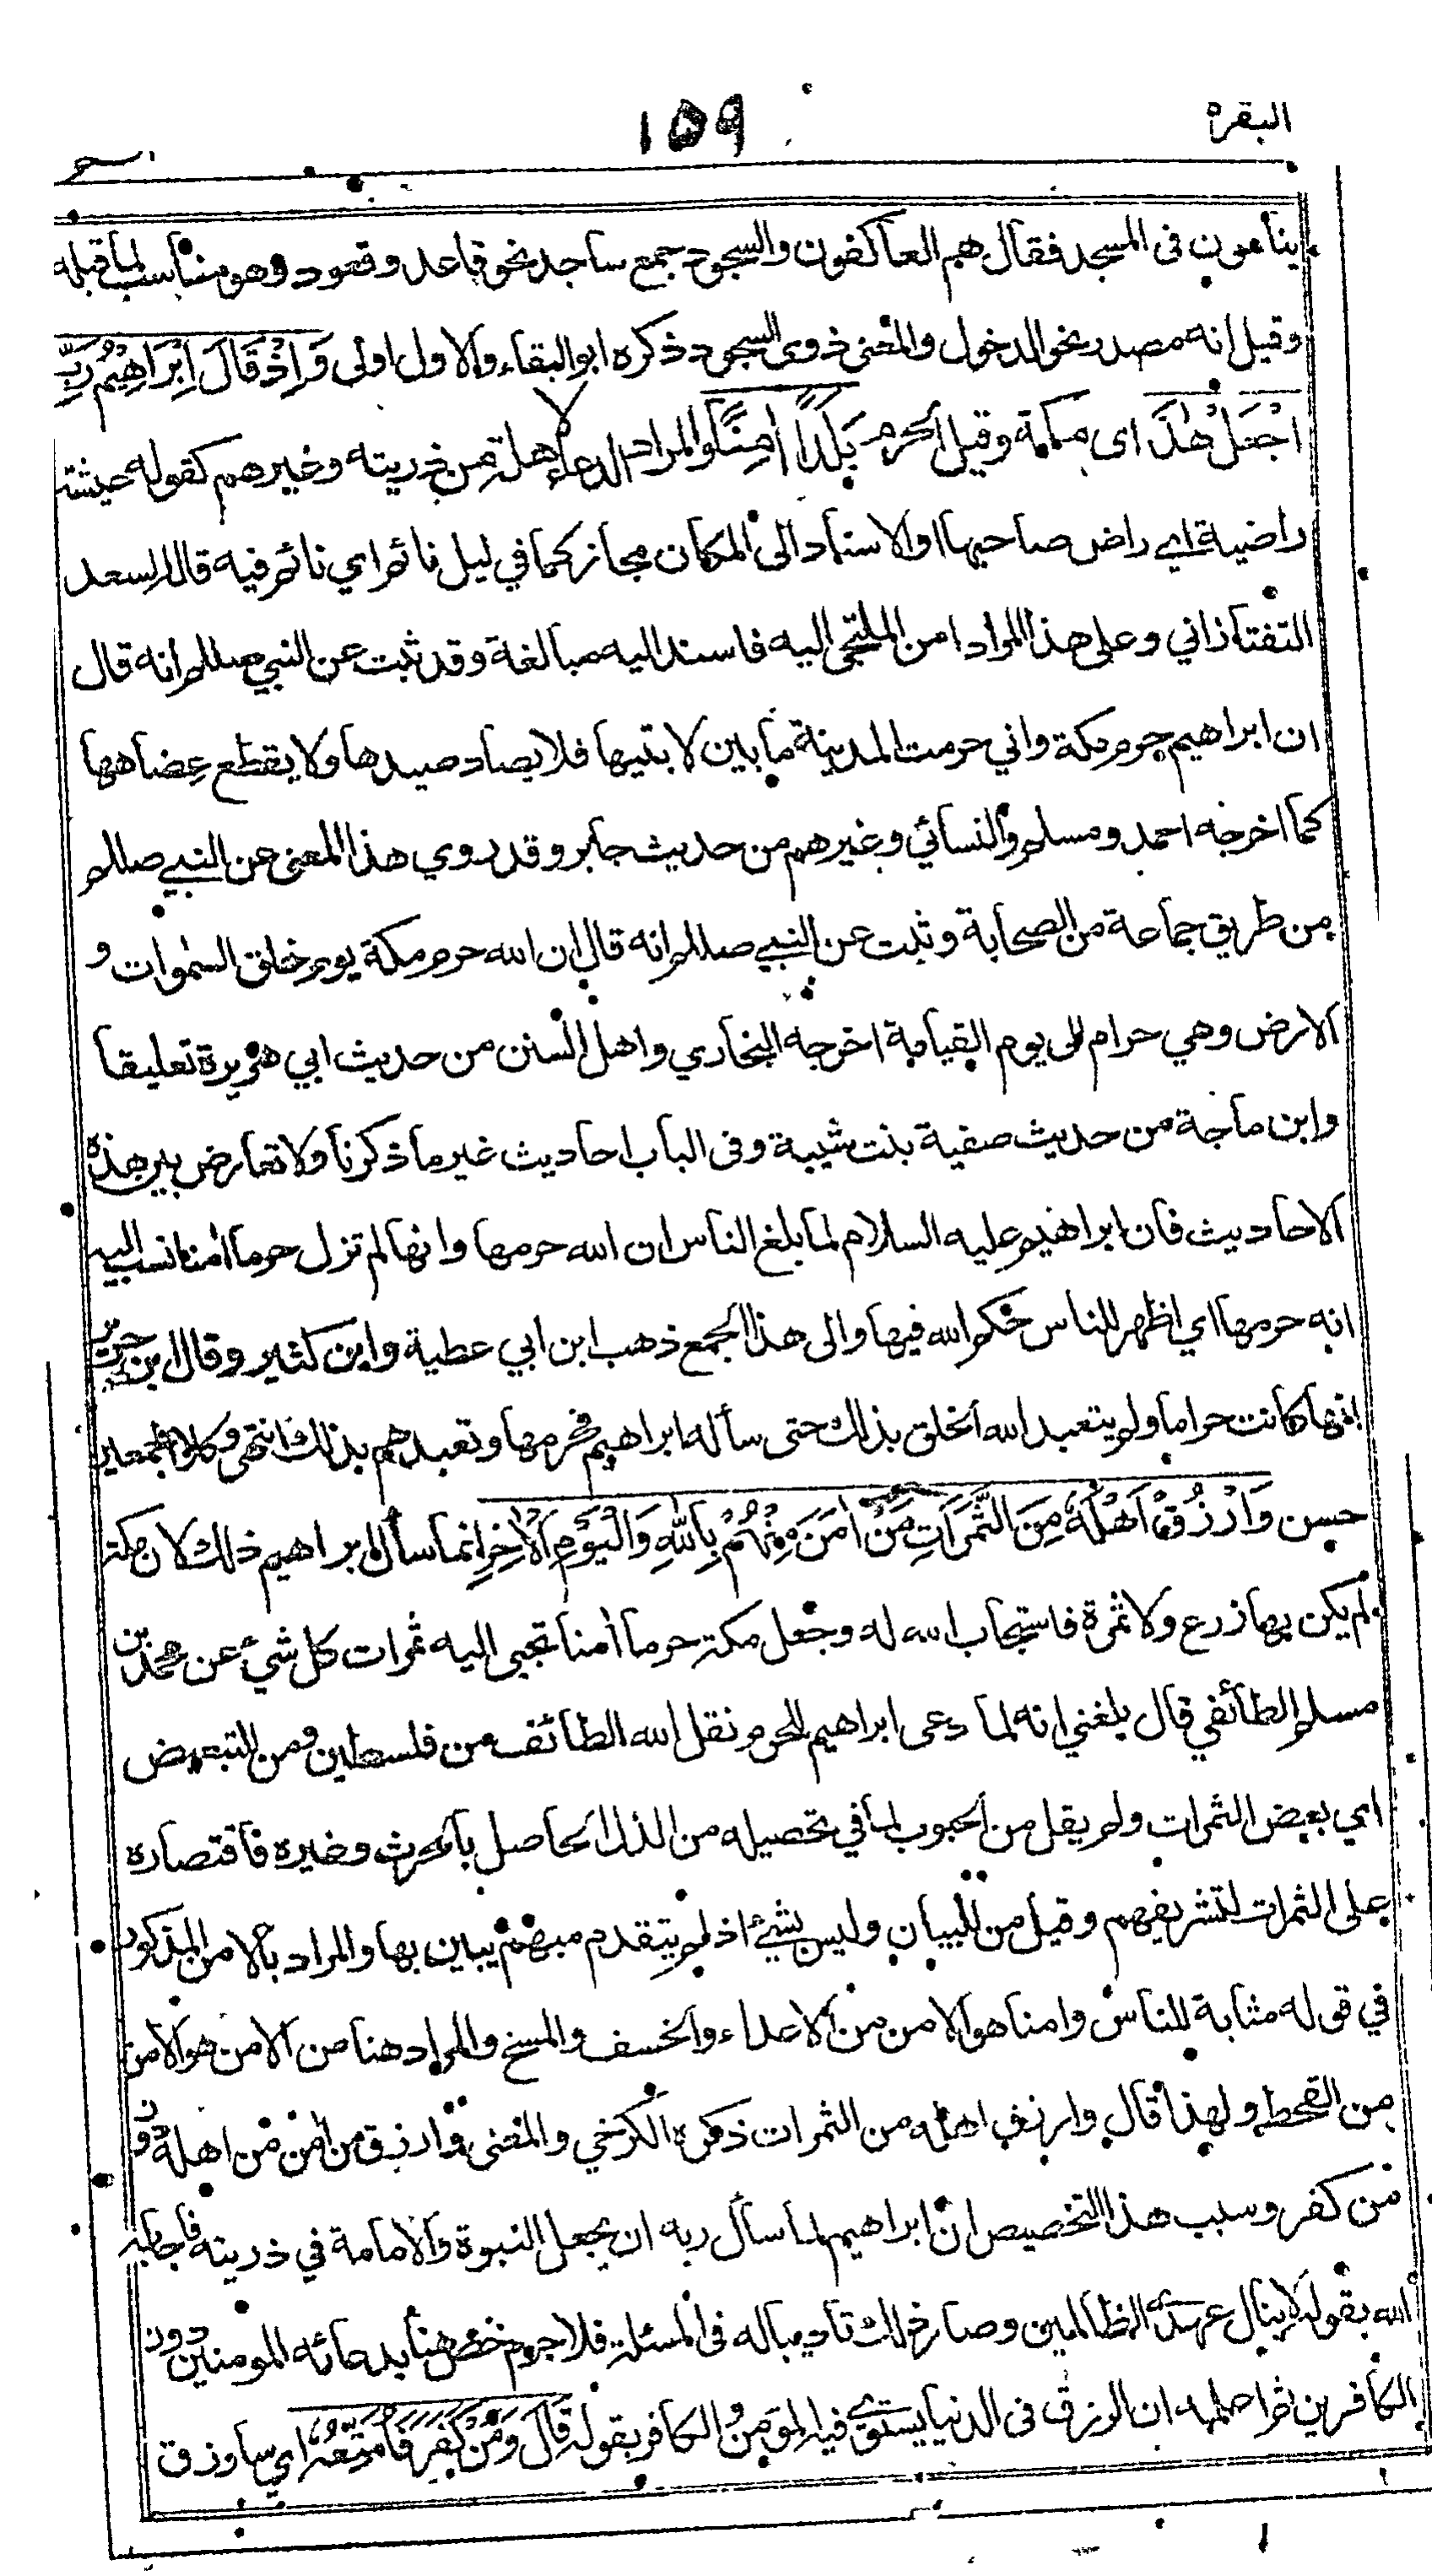 البقرة
١٥٩
الم
ينامون فى المسجد فقال هم العاكفون والسجود جمع ساجد نحو قاعد وقعود وهو مناسب لما قبله
وقيل انه مصدر نحو الدخول والمعنى ذوى السجود ذكره ابو البقاء والاول اولى وَاِذْ قَالَ اِبْرَاهِيْمُ رَبِّ
اجْعَلْ هٰذَا اى مكة وقيل الحرم بَلَدًا اٰمِنًا والمراد الدعاء لاهله من ذريته وغيرهم كقوله عيشة
راضية اي راض صاحبها او الاسناد الى المكان مجاز كما في ليل نائم اي نائم فيه قال السعد
التفتازاني وعلى هذا المراد امن الملتجى اليه فاسند اليه مبالغة وقد ثبت عن النبي صللم انه قال
ان ابراهيم حرم مكة واني حرمت المدينة ما بين لابتيها فلا يصاد صيدها ولا يقطع عضاهها
كما اخرجه احمد ومسلم والنسائي وغيرهم من حديث جابر وقد روي هذا المعنى عن النبي صللم
من طريق جماعة من الصحابة وثبت عن النبي صللم انه قال ان الله حرم مكة يوم خلق السموات و
الارض وهي حرام الى يوم القيامة اخرجه البخاري واهل السنن من حديث ابي هريرة تعليقا
وابن ماجة من حديث صفية بنت شيبة وفى الباب احاديث غير ما ذكرنا ولا تعارض بين هذه
الاحاديث فان ابراهيم عليه السلام لما بلغ الناس ان الله حرمها وانها لم تزل حرما اٰمنا نسب اليه
انه حرمها اي اظهر للناس حكم الله فيها والى هذا الجمع ذهب ابن ابي عطية وابن كثير وقال ابن جرير
انها كانت حراما ولم يتعبد الله الخلق بذلك حتى سأله ابراهيم فحرمها وتعبدهم بذلك انتهى وكلا الجمعين
حسن وَارْزُقْ اَهْلَهٗ مِنَ الثَّمَرَاتِ مَنْ اٰمَنَ مِنْهُمْ بِاللّٰهِ وَالْيَوْمِ الْاٰخِرِ انما سأل ابراهيم ذلك لان مكة
لم يكن بها زرع ولا ثمرة فاستجاب الله له وجعل مكة حرما اٰمنا تجبى اليه ثمرات كل شيء عن محمد بن
مسلم الطائفي قال بلغني انه لما دعى ابراهيم للحرم نقل الله الطائف من فلسطين ومن للتبعيض
اي بعض الثمرات ولم يقل من الحبوب لما في تحصيله من الذل الحاصل بالحرث وغيره فاقتصاره
على الثمرات لتشريفهم وقيل من للبيان وليس بشيء اذ لم يتقدم مبهم يبين بها والمراد بالامن المذكور
في قوله مثابة للناس وامنا هو الامن من الاعداء والخسف والمسخ والمراد هنا من الامن هو الامن
من القحط ولهذا قال وارزق اهله من الثمرات ذكره الكرخي والمعنى وارزق من اٰمن من اهله دون
من كفر وسبب هذا التخصيص ان ابراهيم لما سأل ربه ان يجعل النبوة والامامة في ذريته فاجابه
الله بقوله لا ينال عهدى الظالمين وصار ذلك تاديبا له فى المسئلة فلا جرم خص هنا بدعائه المومنين دون
الكافرين ثم اعلمه ان الرزق فى الدنيا يستوى فيه المؤمن والكافر بقوله قَالَ وَمَنْ كَفَرَ فَاُمَتِّعُهٗ اي سارزق